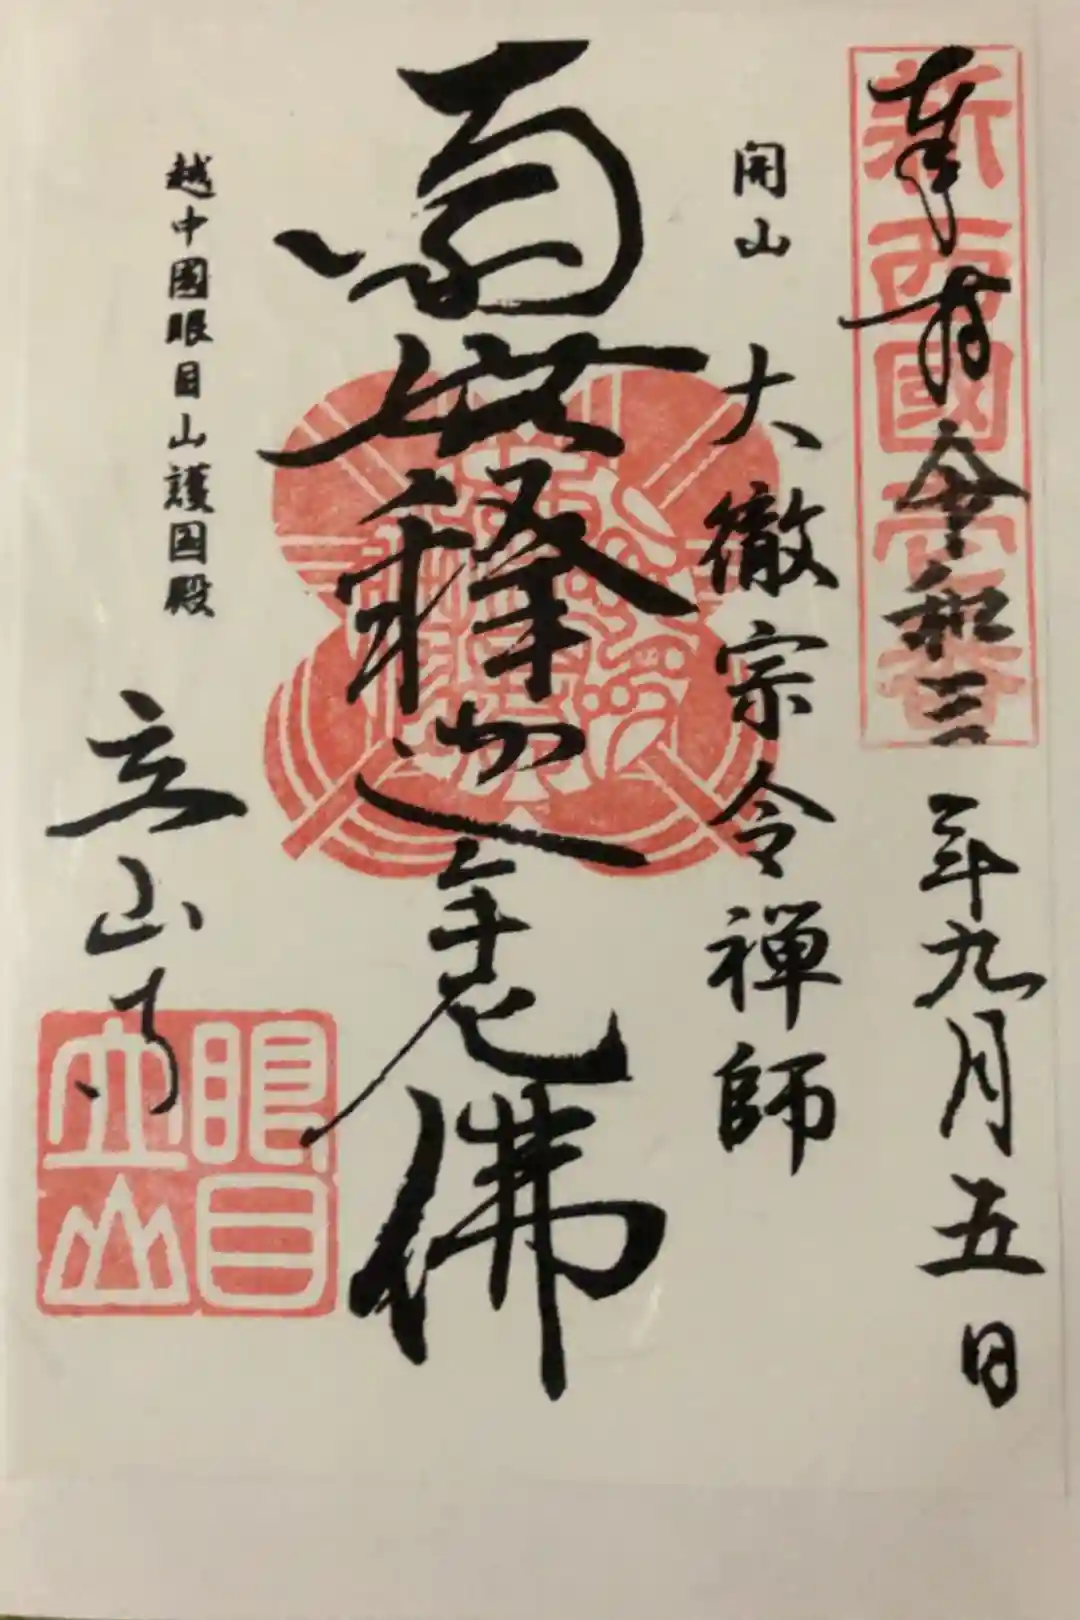 奉拝 令和三年九月五日
新西國壱番
開山 大徹宗令禅師
南無釋迦牟尼佛
越中國眼目山護国殿
立山寺
眼目立山